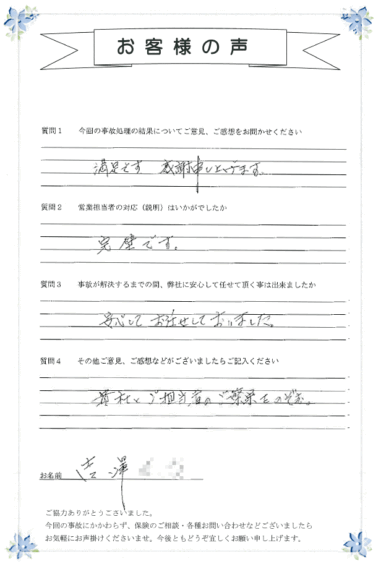 お客様の声
質問1 今回の事故処理の結果についてご意見、ご感想をお聞かせください
満足です 感謝申し上げます。
質問2 営業担当者の対応（説明）はいかがでしたか
完璧です。
質問3 事故が解決するまでの間、弊社に安心して任せて頂く事は出来ましたか
安心してお任せしておりました。
質問4 その他ご意見、ご感想などがございましたらご記入ください
貴社とご担当者のご繁栄をのぞむ。
お名前 吉澤
ご協力ありがとうございました。
今回の事故にかかわらず、保険のご相談・各種お問い合わせなどございましたら
お気軽にお声掛けくださいませ。今後ともどうぞ宜しくお願い申し上げます。